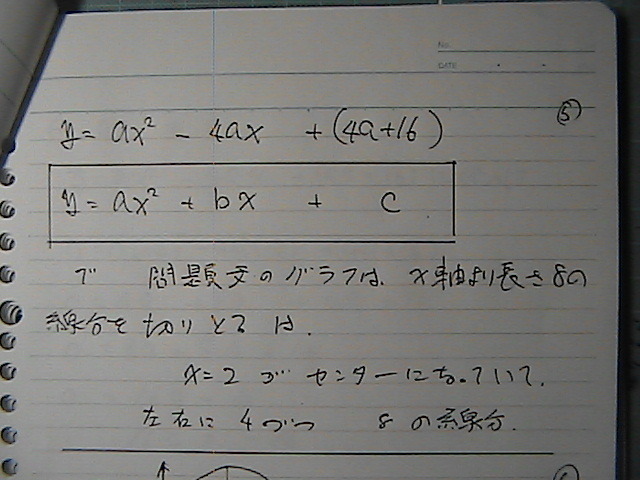 No.
DATE
⑤
y = ax² - 4ax + (4a+16)
y = ax² + bx + c
で 問題文のグラフは、x軸より長さ8の
線分を切りとる は、
x=2 が センターになっていて、
左右に 4づつ 8の線分.